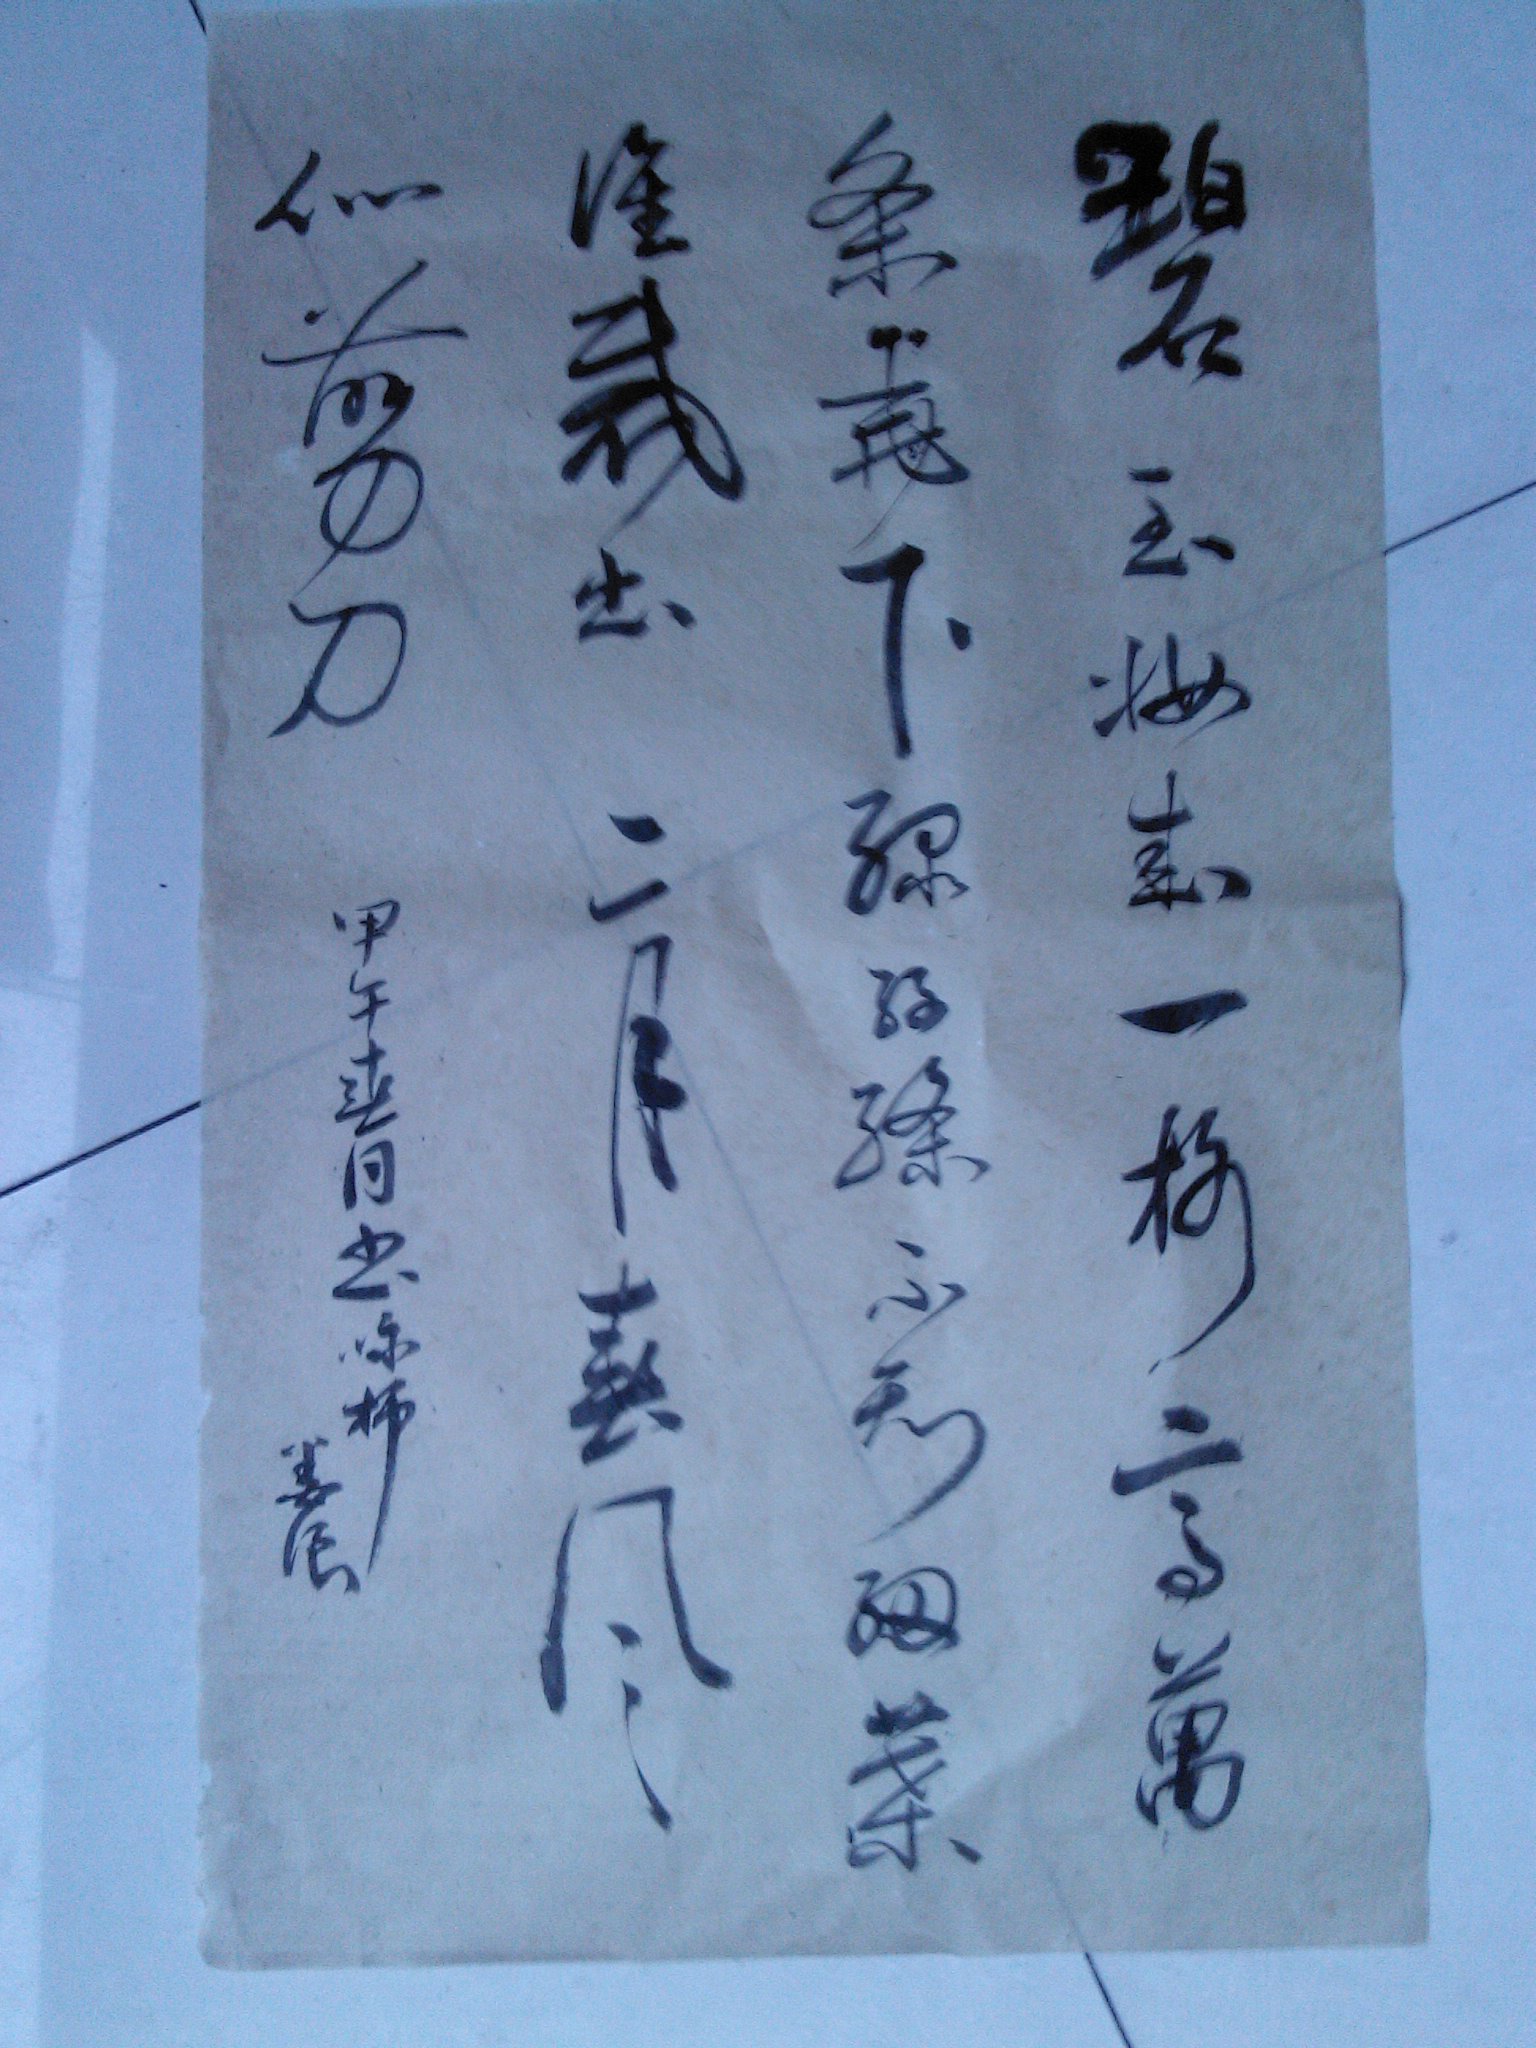 碧玉妝成一樹高萬
條垂下綠絲絛不知細葉
誰裁出二月春風
似剪刀
甲午春月書咏柳